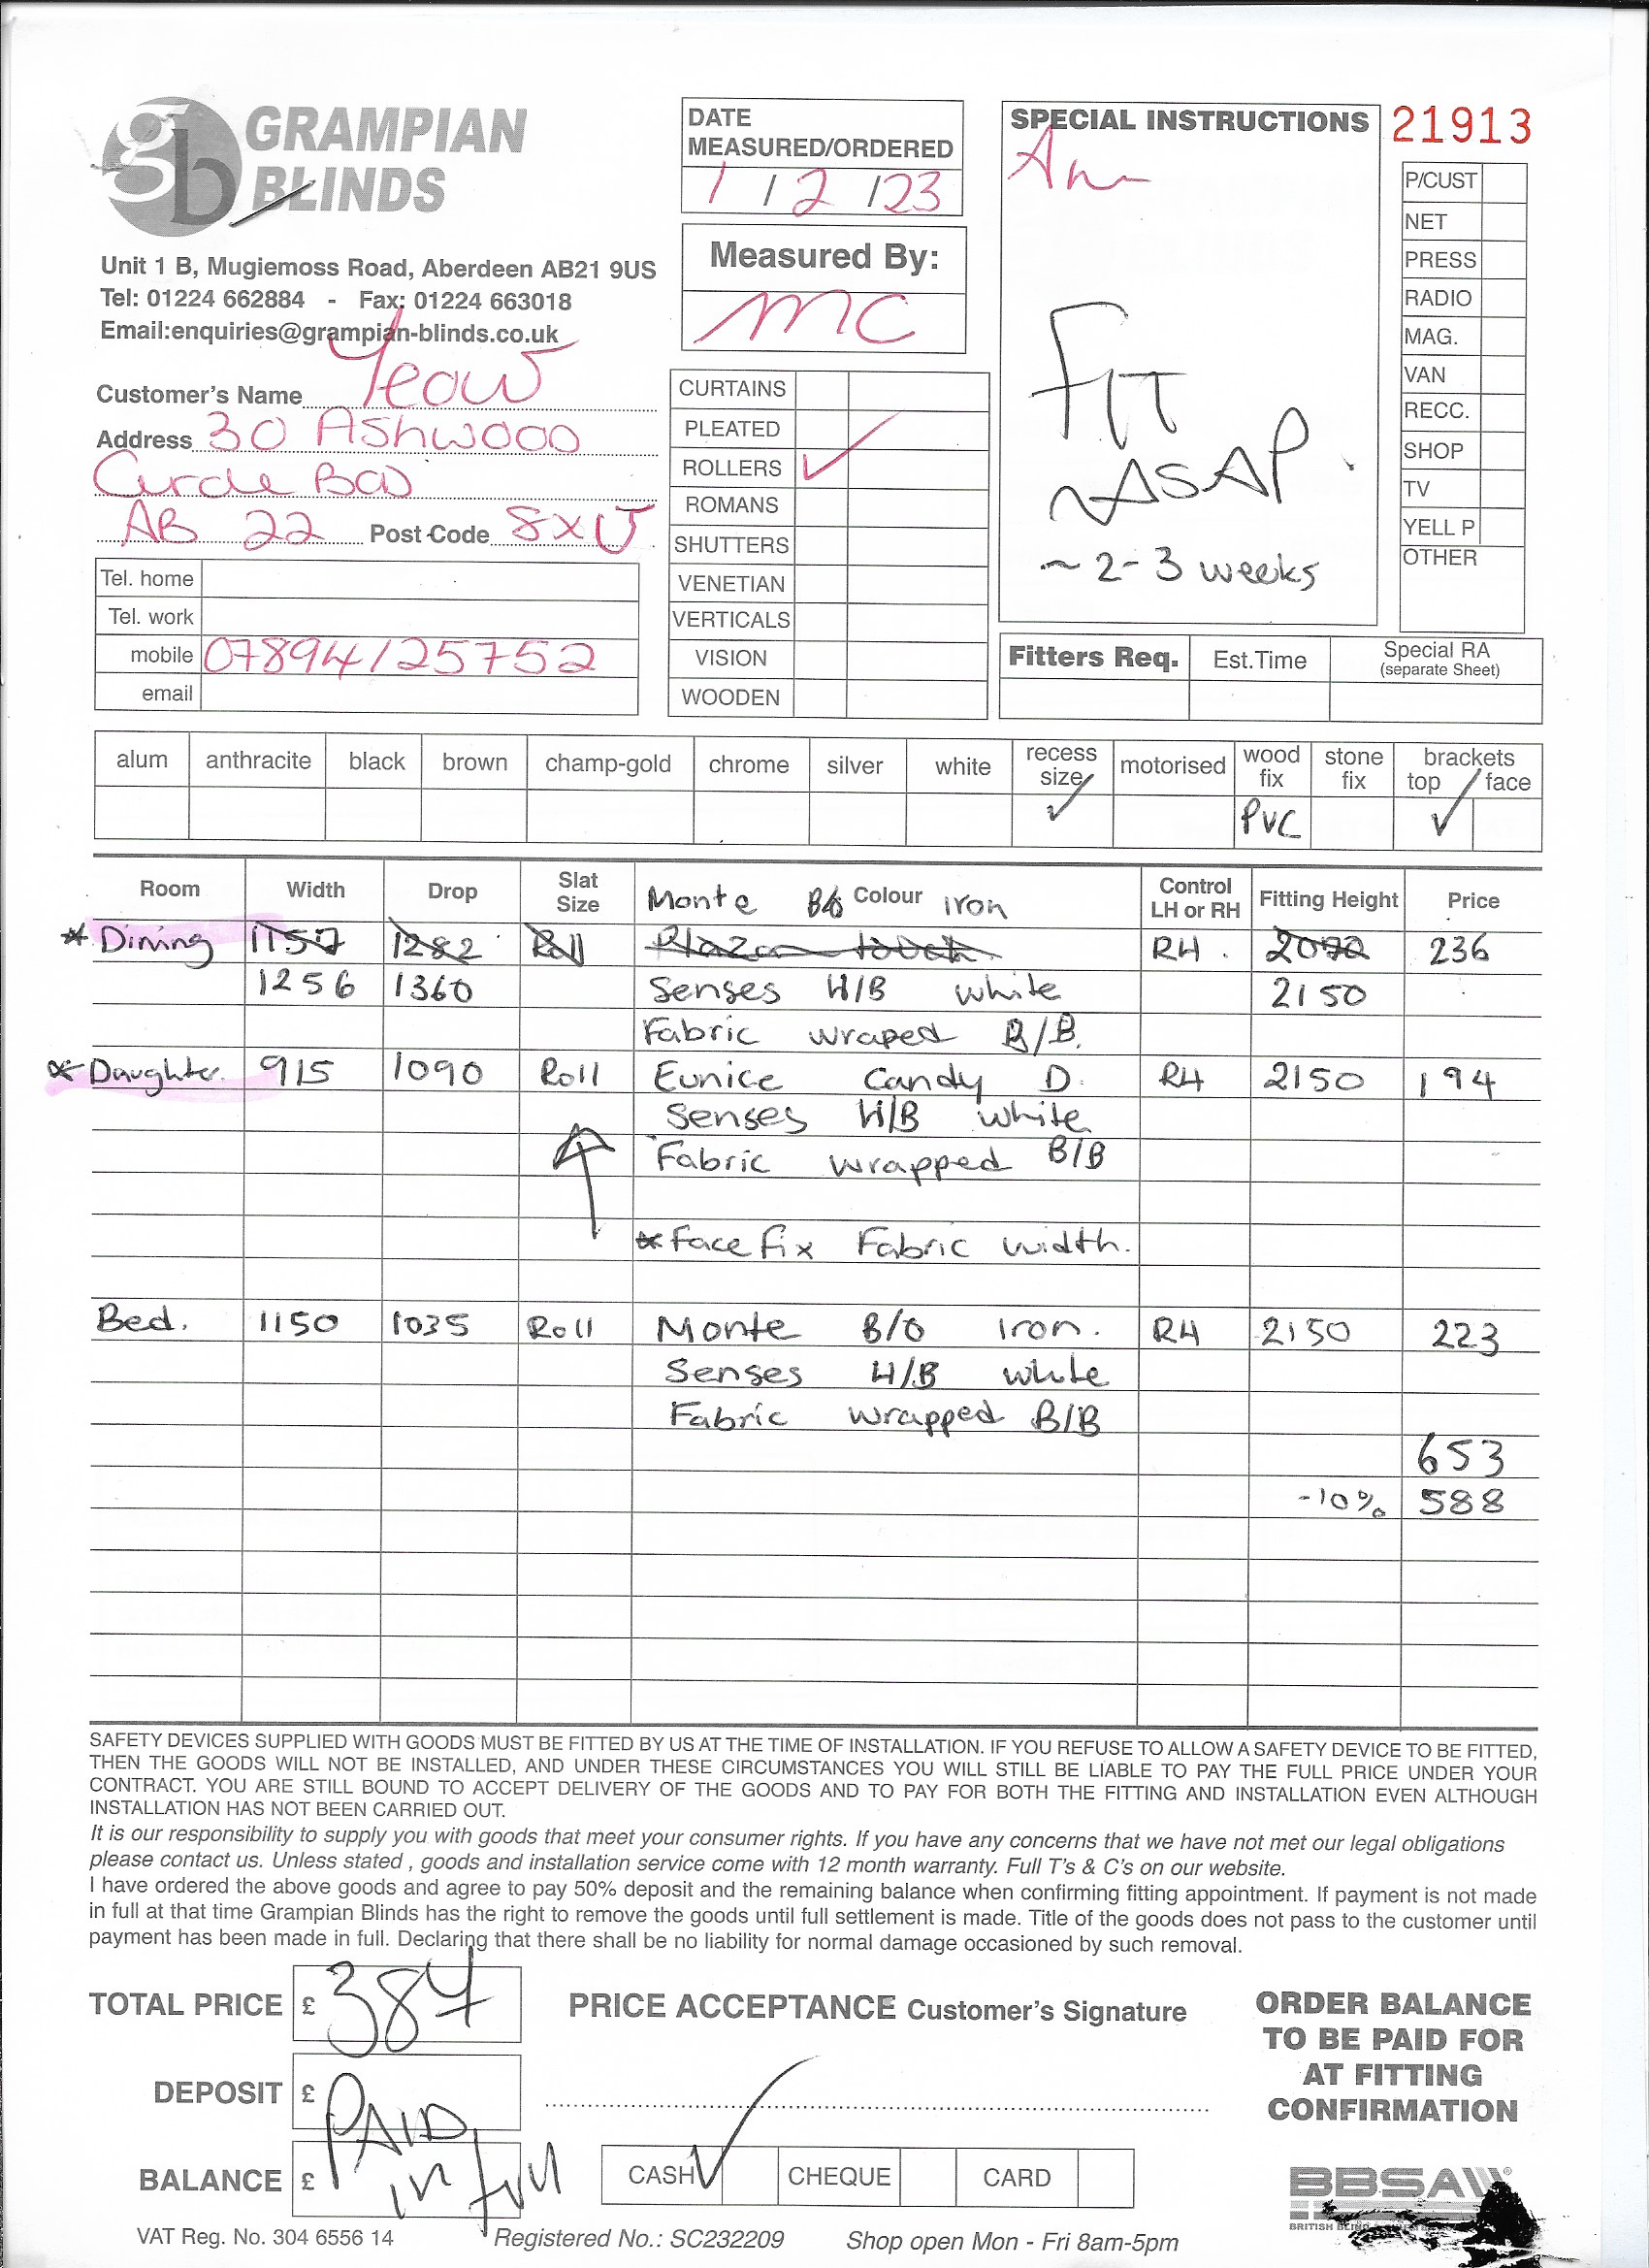 gb GRAMPIAN BLINDS
Unit 1 B, Mugiemoss Road, Aberdeen AB21 9US
Tel: 01224 662884 - Fax: 01224 663018
Email:enquiries@grampian-blinds.co.uk
Customer's Name Yeow
Address 30 Ashwood
Circle BOD
AB 22 Post Code 8XU
Tel. home
Tel. work
mobile 07894125752
email
DATE
MEASURED/ORDERED
1 / 2 / 23
Measured By:
MC
CURTAINS
PLEATED
ROLLERS ✓
ROMANS
SHUTTERS
VENETIAN
VERTICALS
VISION
WOODEN
SPECIAL INSTRUCTIONS
FIT
ASAP.
~ 2-3 weeks
21913
P/CUST
NET
PRESS
RADIO
MAG.
VAN
RECC.
SHOP
TV
YELL P
OTHER
Fitters Req. Est.Time Special RA
(separate Sheet)
alum anthracite black brown champ-gold chrome silver white recess size motorised wood fix stone fix brackets top / face
✓ PVC ✓
Room Width Drop Slat Size Colour Control LH or RH Fitting Height Price
Monte B/O Iron
* Dining 1157 1282 Roll Plaza RH. 2070 236
1256 1360 Senses H/B white 2150
Fabric wraped B/B.
* Daughter. 915 1090 Roll Eunice Candy D. RH 2150 194
Senses H/B white
Fabric wrapped B/B
* Face fix Fabric width.
Bed. 1150 1035 Roll Monte B/O Iron. RH 2150 223
Senses H/B white
Fabric wrapped B/B
653
-10% 588
SAFETY DEVICES SUPPLIED WITH GOODS MUST BE FITTED BY US AT THE TIME OF INSTALLATION. IF YOU REFUSE TO ALLOW A SAFETY DEVICE TO BE FITTED,
THEN THE GOODS WILL NOT BE INSTALLED, AND UNDER THESE CIRCUMSTANCES YOU WILL STILL BE LIABLE TO PAY THE FULL PRICE UNDER YOUR
CONTRACT. YOU ARE STILL BOUND TO ACCEPT DELIVERY OF THE GOODS AND TO PAY FOR BOTH THE FITTING AND INSTALLATION EVEN ALTHOUGH
INSTALLATION HAS NOT BEEN CARRIED OUT.
It is our responsibility to supply you with goods that meet your consumer rights. If you have any concerns that we have not met our legal obligations
please contact us. Unless stated , goods and installation service come with 12 month warranty. Full T's & C's on our website.
I have ordered the above goods and agree to pay 50% deposit and the remaining balance when confirming fitting appointment. If payment is not made
in full at that time Grampian Blinds has the right to remove the goods until full settlement is made. Title of the goods does not pass to the customer until
payment has been made in full. Declaring that there shall be no liability for normal damage occasioned by such removal.
TOTAL PRICE £ 384
DEPOSIT £ PAID
BALANCE £ in full
PRICE ACCEPTANCE Customer's Signature
CASH ✓ CHEQUE CARD
ORDER BALANCE
TO BE PAID FOR
AT FITTING
CONFIRMATION
BBSA
VAT Reg. No. 304 6556 14 Registered No.: SC232209 Shop open Mon - Fri 8am-5pm